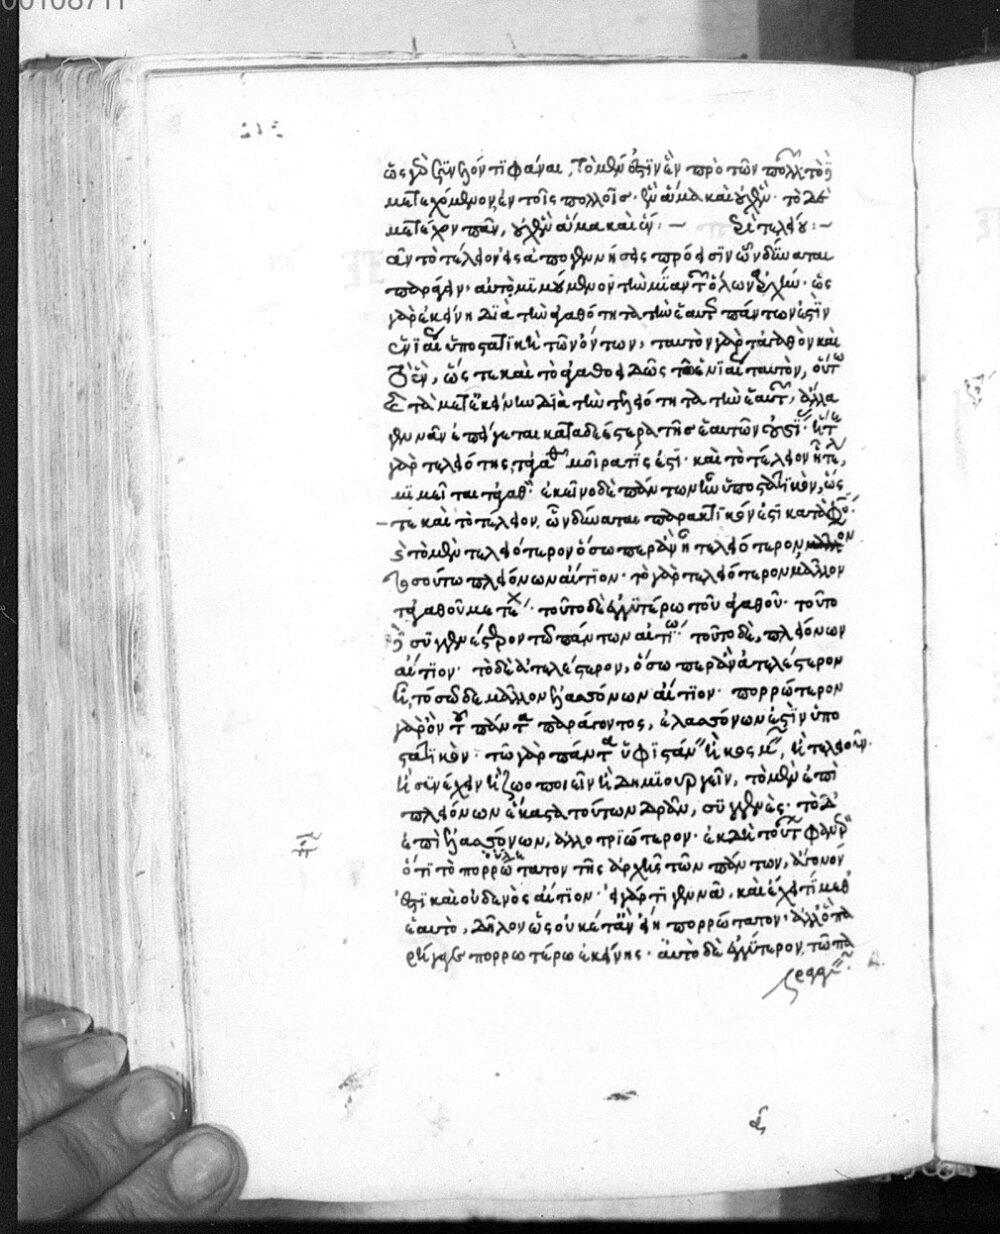 ὡς γὰρ συνελόντι φάναι, τὸ μέν ἐστιν ἓν πρὸ τῶν πολλῶν· τὸ δὲ
μετεχόμενον, ἐν τοῖς πολλοῖς· ἓν ἅμα καὶ οὐχ ἕν· τὸ δὲ
μετέχον πᾶν, οὐχ ἓν ἅμα καὶ ἕν:—
ᾶν τὸ τέλειον εἰς ἀπογεννήσεις πρόεισιν ὧν δύναται
παράγειν· αὐτὸ μιμούμενον τὴν μίαν τῶν ὅλων ἀρχήν· ὡς
γὰρ ἐκείνη διὰ τὴν ἀγαθότητα τὴν ἑαυτῆς πάντων ἐστὶν
ἑνιαίως ὑποστατικὴ τῶν ὄντων, ταυτὸν γὰρ τἀγαθὸν καὶ
τὸ ἕν, ὥστε καὶ τὸ ἀγαθοειδῶς τῶ ἑνιαίως ταυτὸν, οὕτω
καὶ τὰ μετ' ἐκείνην διὰ τὴν τελειότητα τὴν ἑαυτῶν, ἄλλα
γεννᾶν ἐπείγεται καταδεέστερα τῆς ἑαυτῶν οὐσίας· ἥτε
γὰρ τελειότης, τἀγαθοῦ μοῖρα τίς ἐστι· καὶ τὸ τέλειον ᾗ τέλειον,
μιμεῖται τἀγαθόν· ἐκεῖνο δὲ πάντων ἦν ὑποστατικὸν, ὥς
τε καὶ τὸ τέλειον, ὧν δύναται παρακτικόν ἐστι κατὰ φύσιν·
καὶ τὸ μὲν τελειότερον ὅσω περ ἂν ᾖ τελειότερον
τοσούτω πλειόνων αἴτιον· τὸ γὰρ τελειότερον μᾶλλον
τἀγαθοῦ μετέχει· τοῦτο δὲ ἐγγυτέρω τοῦ ἀγαθοῦ· τοῦτο
δὲ συγγενέστερον τῶ πάντων αἰτίω· τοῦτο δὲ, πλειόνων
αἴτιον· τὸ δὲ ἀτελέστερον, ὅσω περ ἂν ἀτελέστερον
ᾖ, τόσω δε μᾶλλον ἐλασσόνων αἴτιον· πορρώτερον
γὰρ ὂν τοῦ πάντα παράγοντος, ἐλασσόνων ἐστὶν ὑπο
στατικὸν· τῶ γὰρ πάντα ὑφιστάν ἢ κοσμεῖν, ἢ τελειοῦν
ἢ συνέχειν ἢ ζωοποιεῖν ἢ δημιουργεῖν, τὸ μὲν ἐπὶ
πλειόνων ἕκαστα τούτων δρᾶν, συγγενὲς· τὸ δ'
ἐπὶ ἐλασσόνων, ἀλλοτριώτερον· ἐκ δὴ τούτων φανερὸν
ὅτι τὸ πορρώτατον τῆς ἀρχῆς τῶν πάντων, ἄγονόν
ἐστι καὶ οὐδενὸς αἴτιον· εἰ γάρ τι γεννᾶ, καὶ ἔχει τὶ μεθ'
ἑαυτὸ, δῆλον ὡς οὐκέτ' ἂν εἴη πορρώτατον· ἀλλ' ὃ πα
ρήγαγε πορρωτέρω ἐκείνης· αὐτὸ δὲ ἐγγύτερον, τῶ πα